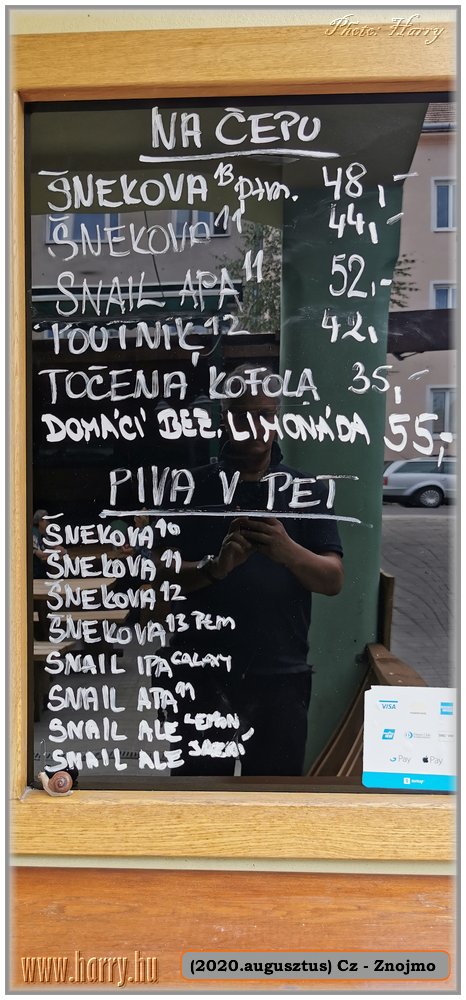 Photo: Harry
NA ČEPU
ŠNEKOVA 13 ptm. 48,-
ŠNEKOVA 11 44,-
SNAIL APA 11 52,-
POUTNIK 12 42,
TOČENA KOFOLA 35,-
DOMÁCÍ BEZ. LIMONÁDA 55,-
PIVA V PET
ŠNEKOVA 10
ŠNEKOVA 11
ŠNEKOVA 12
ŠNEKOVA 13 PTM
SNAIL IPA GALAXY
SNAIL APA 11
SNAIL ALE LEMON
SNAIL ALE
VISA
G Pay Pay
www.harry.hu
(2020.augusztus) Cz - Znojmo